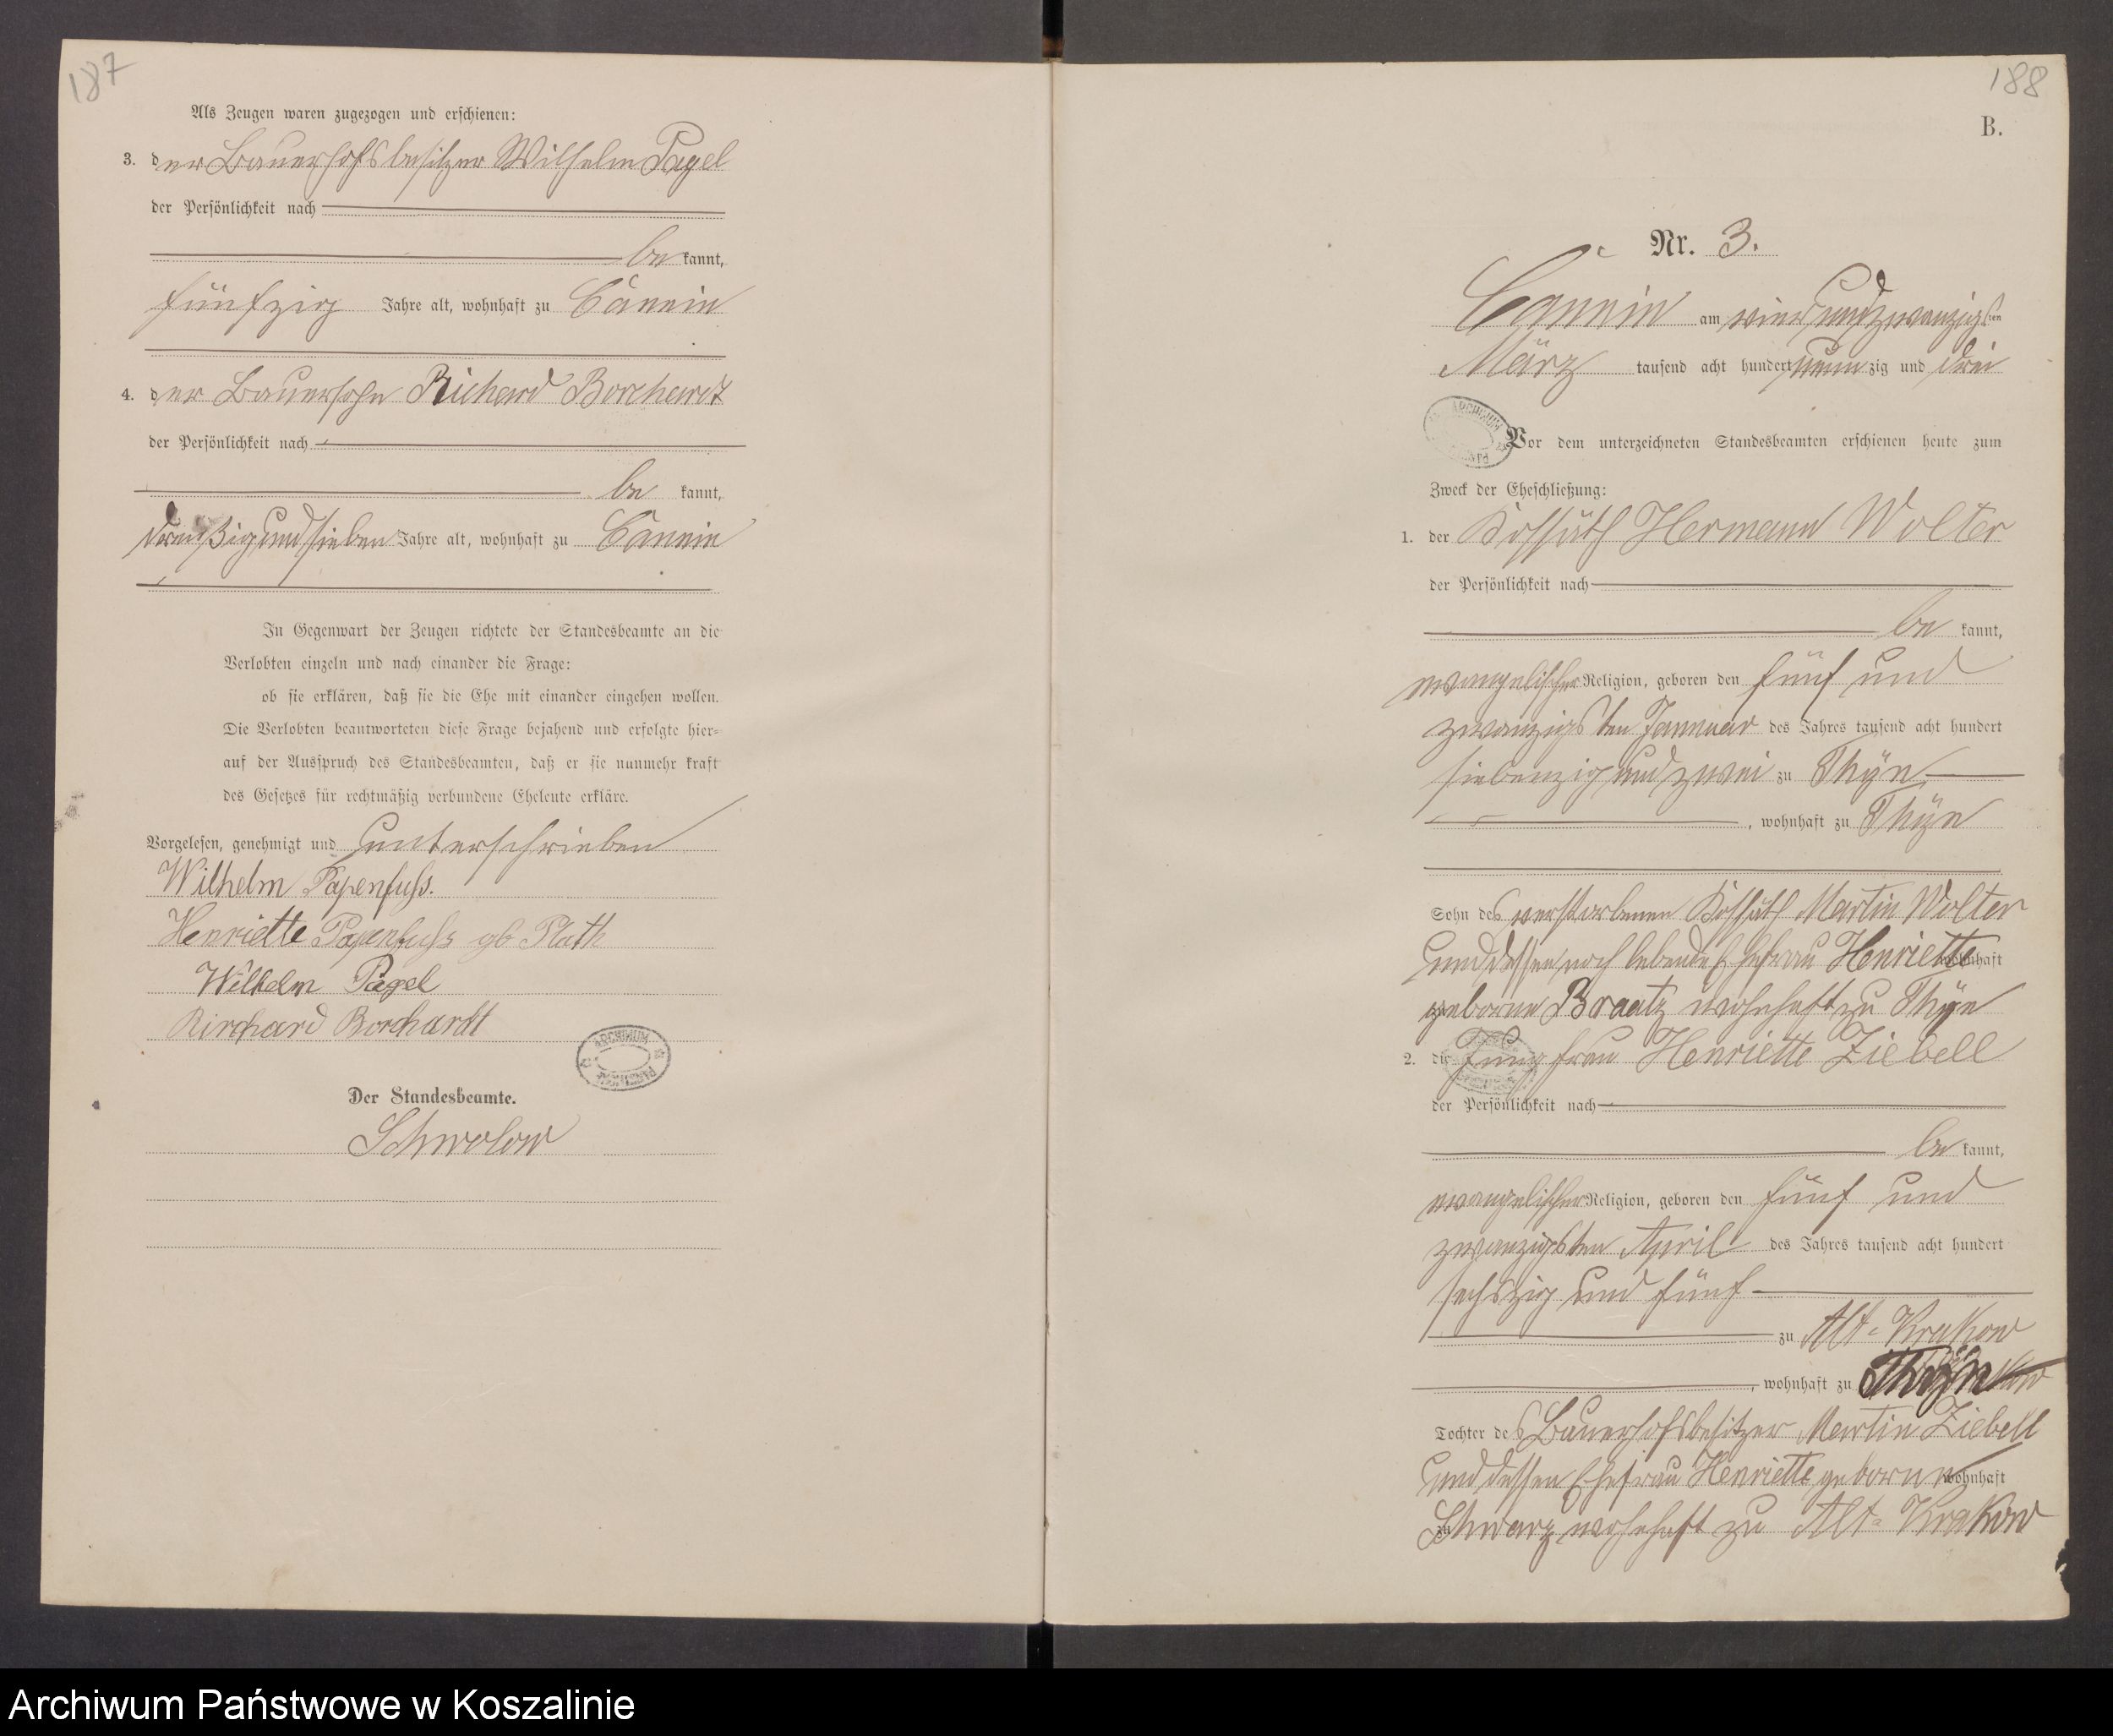 187
Als Zeugen waren zugezogen und erschienen:
3. der Bauerhofsbesitzer Wilhelm Pagel
der Persönlichkeit nach
be kannt,
fünfzig Jahre alt, wohnhaft zu Cannin
4. der Bauersohn Richard Borchardt
der Persönlichkeit nach
be kannt,
dreißig und sieben Jahre alt, wohnhaft zu Cannin
In Gegenwart der Zeugen richtete der Standesbeamte an die
Verlobten einzeln und nach einander die Frage:
ob sie erklären, daß sie die Ehe mit einander eingehen wollen.
Die Verlobten beantworteten diese Frage bejahend und erfolgte hier-
auf der Ausspruch des Standesbeamten, daß er sie nunmehr kraft
des Gesetzes für rechtmäßig verbundene Eheleute erkläre.
Vorgelesen, genehmigt und unterschrieben
Wilhelm Papenfuss.
Henriette Papenfuss gb Plath
Wilhelm Pagel
Richard Borchardt
ARCHIWUM
Der Standesbeamte.
Schwolow
188
B.
Nr. 3.
Cannin am vier und zwanzigsten
März tausend acht hundert neunzig und drei
ARCHIWUM
Vor dem unterzeichneten Standesbeamten erschienen heute zum
Zweck der Eheschließung:
1. der Kossäth Hermann Wolter
der Persönlichkeit nach
be kannt,
evangelischer Religion, geboren den fünf und
zwanzigsten Januar des Jahres tausend acht hundert
siebenzig und zwei zu Thÿn
, wohnhaft zu Thÿn
Sohn des verstorbenen Kossäth Martin Wolter
und dessen noch lebende Ehefrau Henriette wohnhaft
geborne Braatz wohnhaft zu Thÿn
2. die Jungfrau Henriette Ziebell
der Persönlichkeit nach
be kannt,
evangelischer Religion, geboren den fünf und
zwanzigsten April des Jahres tausend acht hundert
sechszig und fünf
zu Alt-Krakow
, wohnhaft zu Thÿn
Tochter des Bauerhofsbesitzer Martin Ziebell
und dessen Ehefrau Henriette geborne wohnhaft
zu Schwarz wohnhaft zu Alt-Krakow
Archiwum Państwowe w Koszalinie